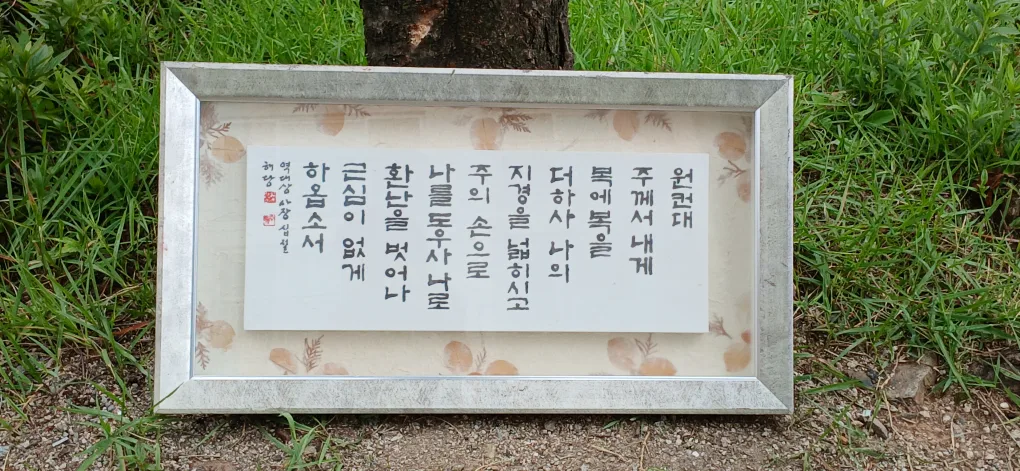 원컨대
주께서 내게
복에 복을
더하사 나의
지경을 넓히시고
주의 손으로
나를 도우사 나로
환난을 벗어나
근심이 없게
하옵소서
역대상 사장 십절
해당